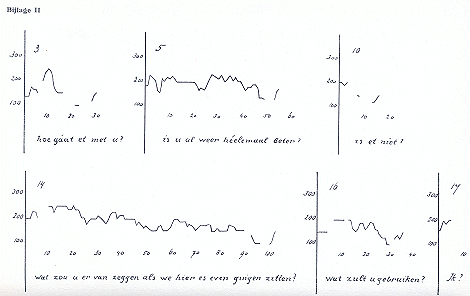 Bijlage II
3 5 10
300 300 300
200 200 200
100 100 100
10 20 30 10 20 30 40 50 60 10 20
hoe gáat et met u? is u al weer héelemaal beter? is et niet?
14 16 17
300 300 300
200 200 200
100 100 100
10 20 30 40 50 60 70 80 90 100 10 20 30 40 10
wat zou u er van zeggen als we hier es even gingen zitten? wat zult u gebruiken? Ik?